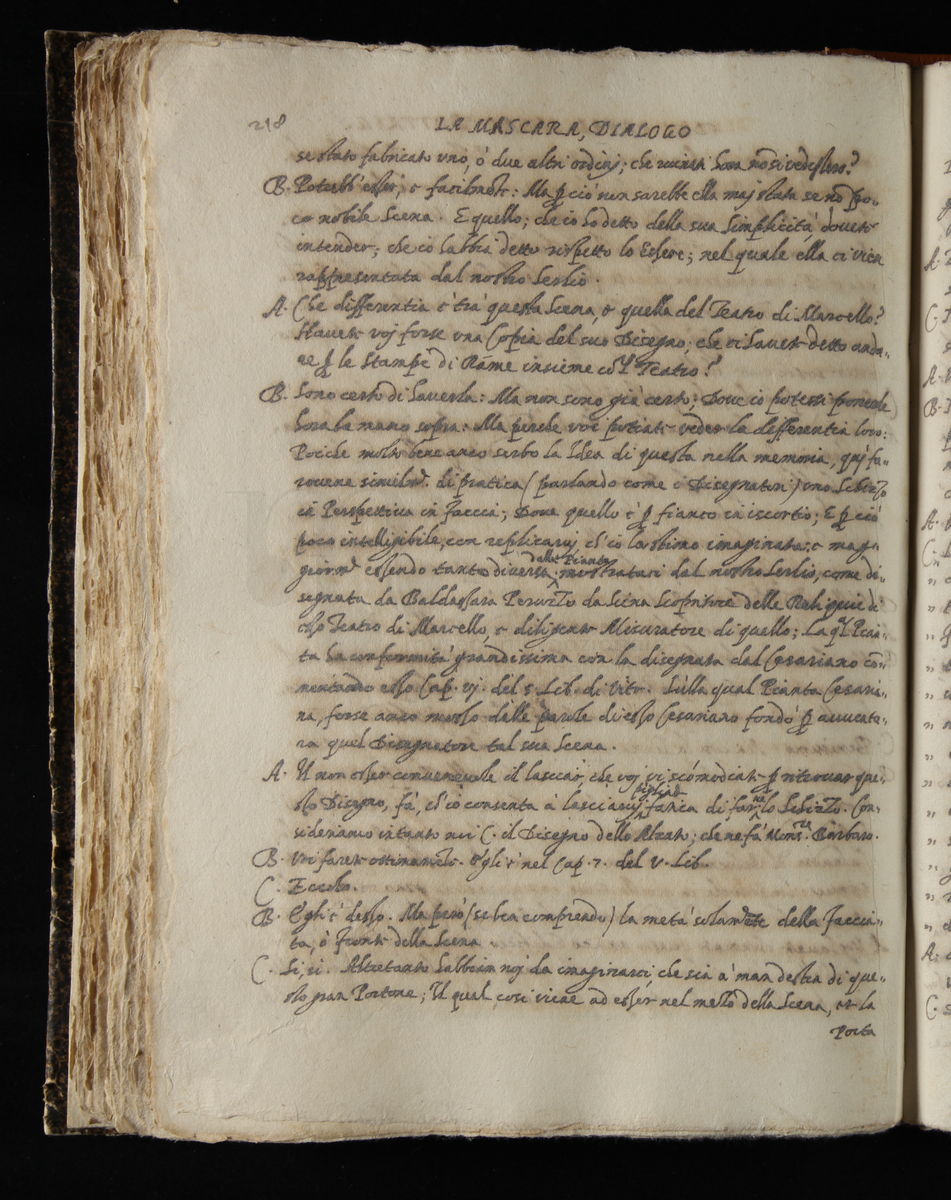 218
LA MASCARA, DIALOGO
se stato fabricato uno, ò due altri ordini; che rimirati hora non si vedessero?
B. Potrebb'esser; e facilmente: Ma p ciò non sarebbe ella maj stata se nõ po-
co nobile Scena. E quello; che io ho detto della sua Simplicità, dovete
intender; che io l'abbia detto rispetto lo Essere; nel quale ella ci vien
rappresentata dal nostro Serlio.
A. Che differentia è trà questa Scena, e quella del Teatro di Marcello?
Havete voj forse una Copia del suo Disegno; che ci havete detto anda-
re p le Stampe di Rame insieme col Teatro?
B. Sono certo di haverla: Ma non sono già certo; Dove io potessi poneale
hora la mano sopra: Ma perche voi potiate veder la differentia loro:
Poiche molto bene anco serbo la Idea di questa nella memoria, quj fa-
rovene similmte. di pratica (parlando come i Disegnatori) uno Schizzo
in Perspettiva in faccia; Dove quello è p fianco in iscortio; E p ciò
poco intelligibile, con replicaruj ch'io la stimo imaginata; e mag-
giormte essendo tanto diversa dalla Pianta mostrataci dal nostro Serlio, come di-
segnata da Baldassara Peruzzo da Siena Scopritore delle Reliquie di
esso Teatro di Marcello, e diligente Misuratore di quello; La ql Pian-
ta ha conformità grandissima con la disegnata dal Cesariano cõ-
mentando esso Cap. vj. del 5. Lib. di Vitr. Sulla qual Pianta Cesaria-
na, forse anco mosso dalle parole di esso Cesariano fondò p avventu-
ra quel Disegnatore tal sua Scena.
A. Il non esser convenevole il lasciar, che voj vi scõmodiate p ritrovar que-
sto Disegno, fà, ch'io consenta à lasciarvj pigliar fatica di farne lo Schizzo. Con-
sideriamo intanto noi C. il Disegno dello Alzato; che ne fà Monsre. Barbaro.
B. Voi farete ottimamente. Egli è nel Cap. 7. del V. Lib.
C. Eccolo.
B. Egli è desso. Ma però (se ben comprendo) la metà solamẽte della faccia-
ta, ò fronte della Scena
C. Si, si. Altretanto habbiam noj da imaginarci che sia à man destra di que-
sto gran Portone; Il qual così viene ad esser nel mezzo della Scena, et la
Porta